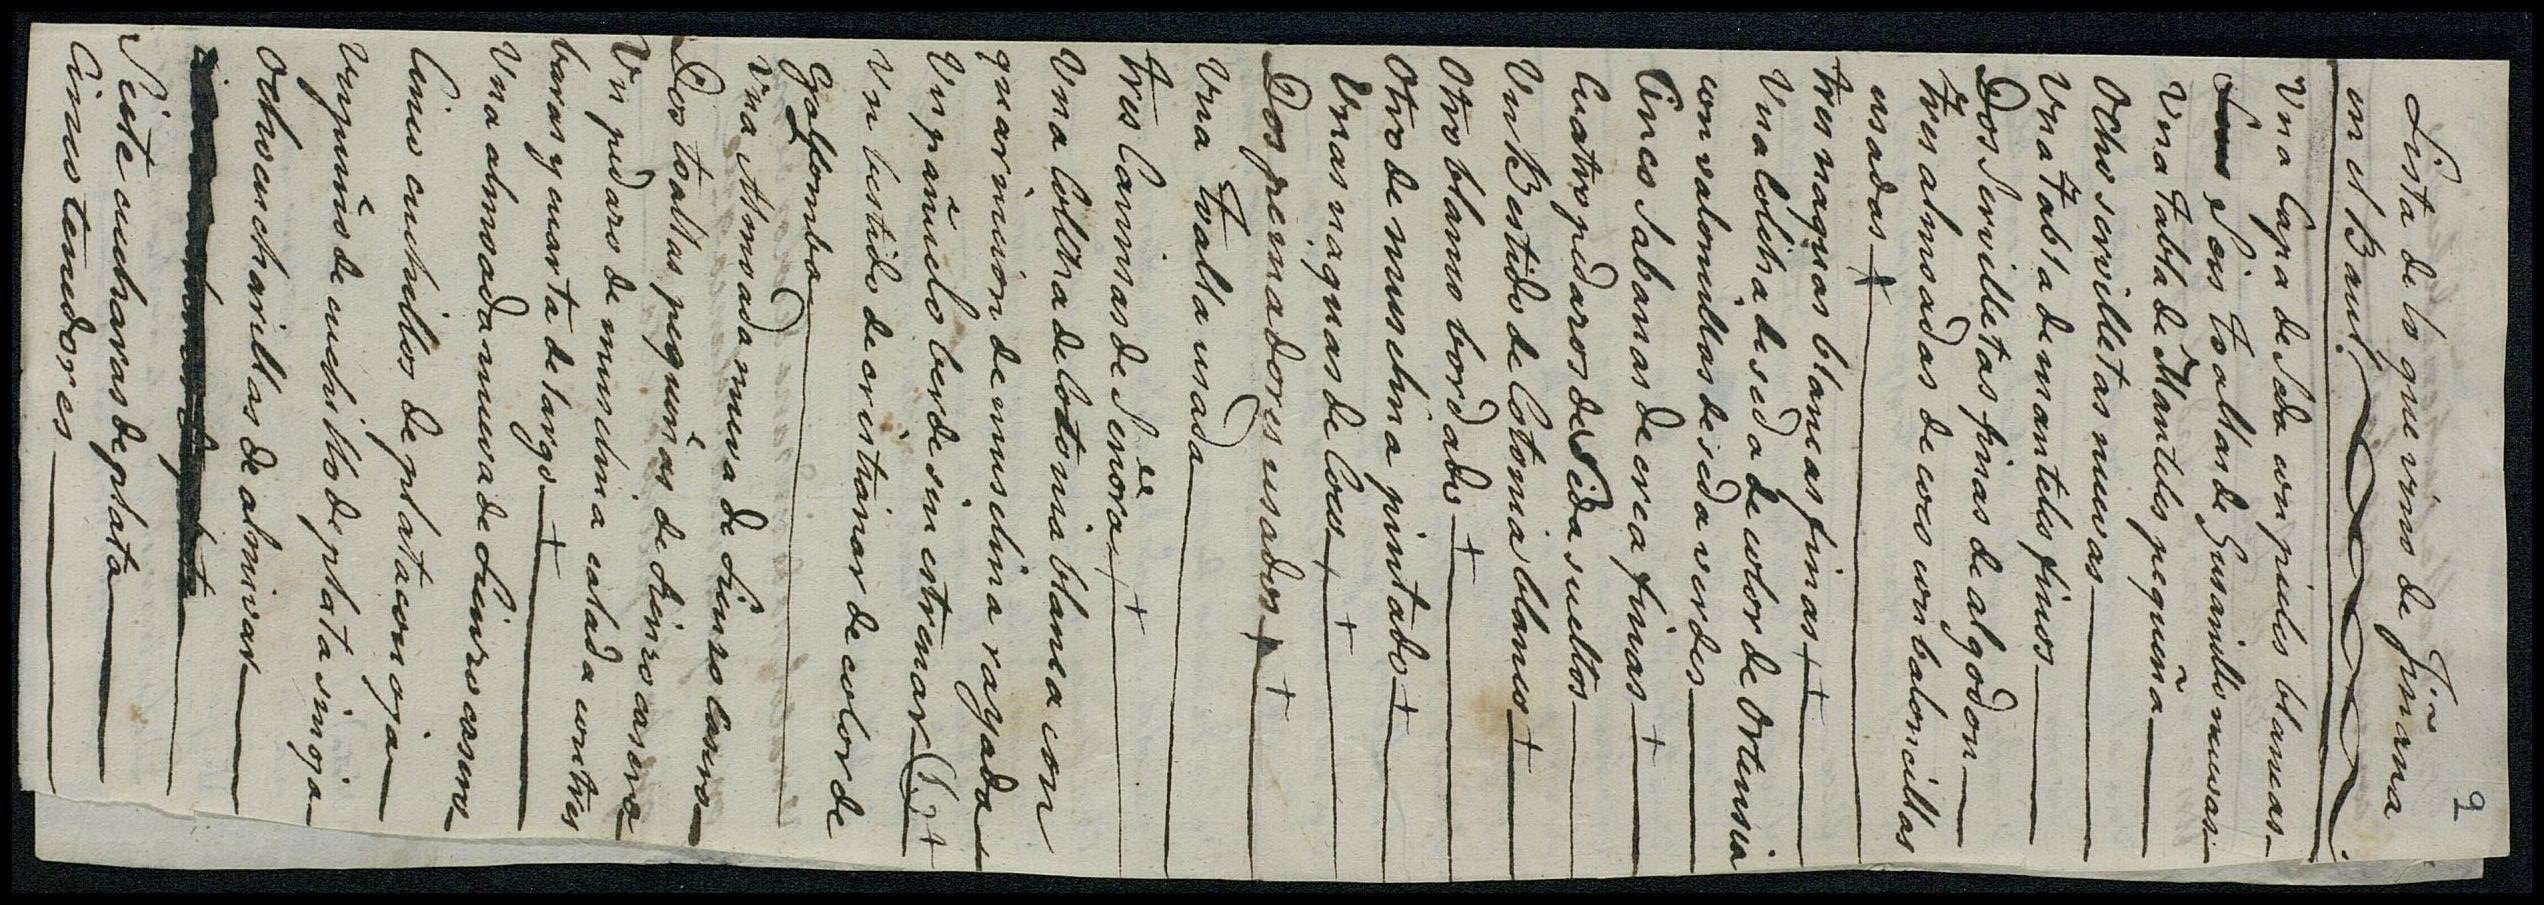 9
Lista de lo que vino de
en el Baul.
Una Capa de Seda con pieles blancas
Seis toallas de Gusanillo nuevas
Una tabla de Manteles pequeña
Ocho servilletas nuevas
Una tabla de manteles finos
Dos Servilletas finas de algodon
tres almoadas de coco con baloncillos
usadas +
tres naguas blancas finas + +
Una Colcha de seda de color de Ortensia
con valonsillas de seda verdes
Cinco Sabanas de crea finas +
Cuatro pedazos de Seda sueltos
Un Bestido de Cotonia blanco +
Otro blanco bordado +
Otro de muselina pintado +
Unas naguas de Coco + +
Dos peinadores usados + +
Una toalla usada
tres Camisas de Señora + +
Una Colcha de Cotonia blanca con
guarnicion de muselina rayada
Un pañuelo berde sin estrenar +
Un bestido de cristianar de color de
Una Almoada nueva de lienzo Casero
Dos toallas pequeñas de lienzo casero
Un pedazo de muselina calada con tres
baras y cuarta de largo +
Una almoada nueva de lienzo casero
Cinco cuchillos de plata con oja
Un puño de cuchillo de plata sin oja
Ocho cucharillas de almivar
Siete cucharas de plata
Cinco tenedores